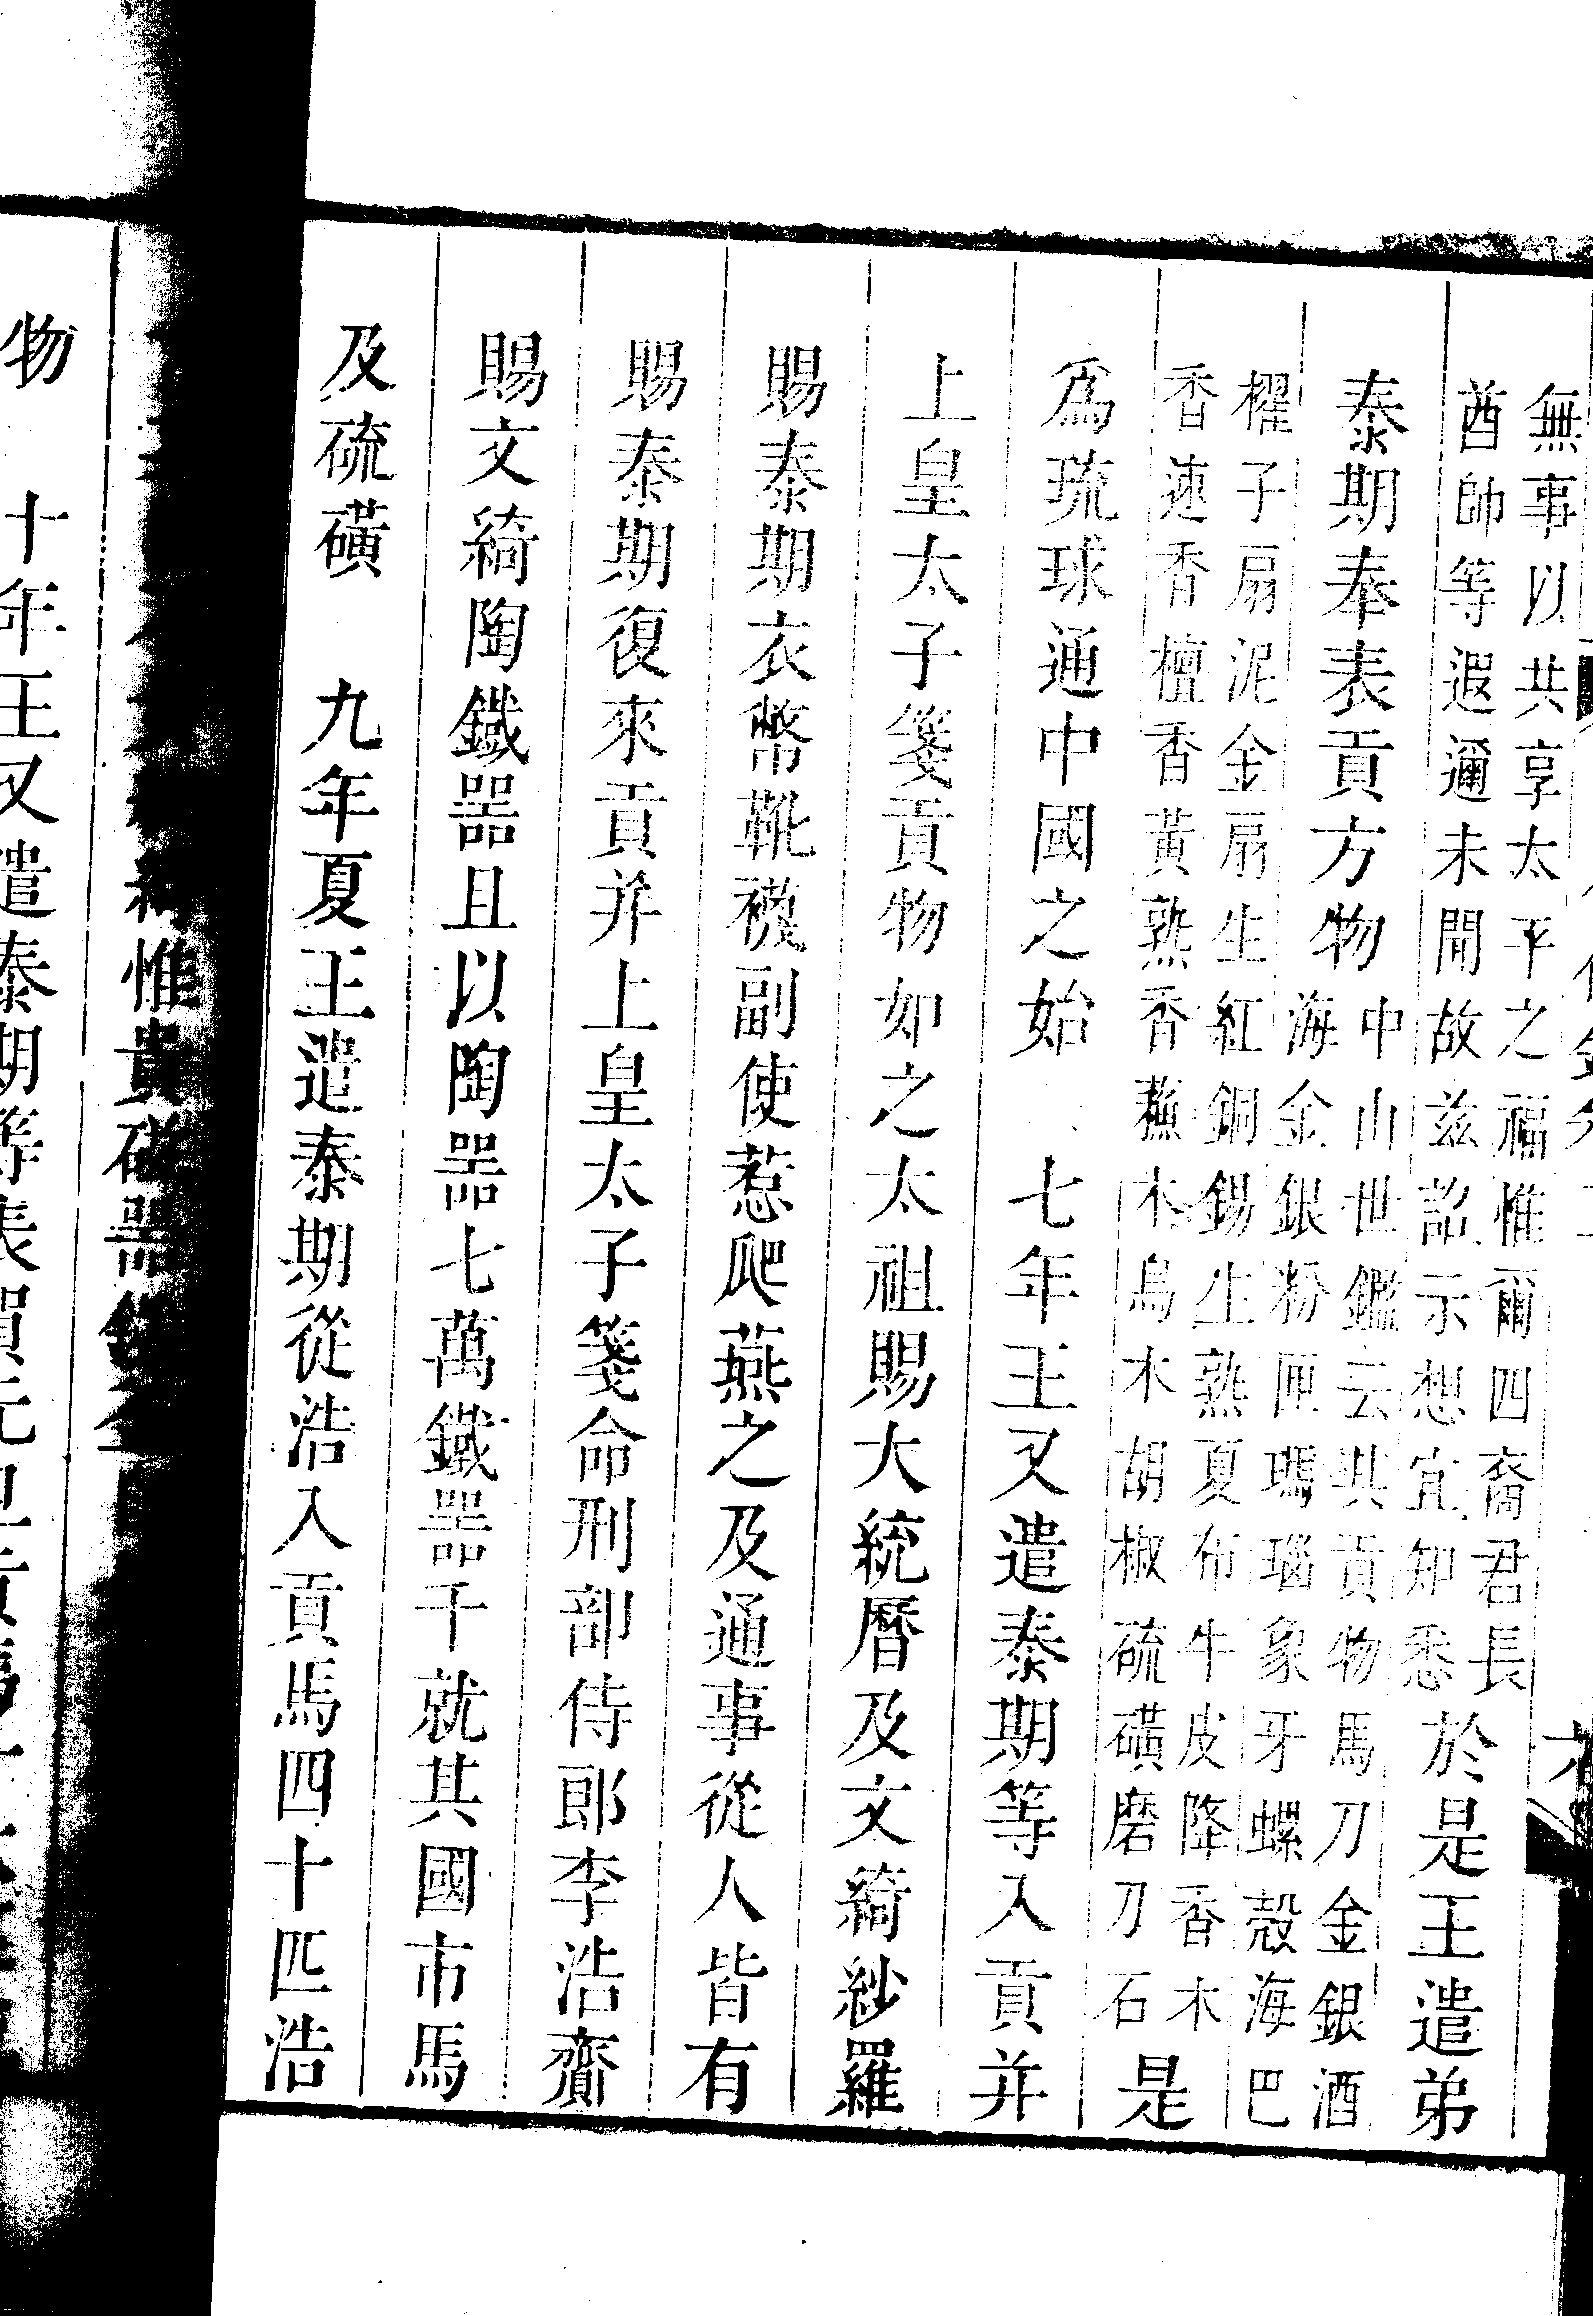 無事以共享太平之福惟爾四裔君長
酋帥等遐邇未聞故兹詔示想宜知悉
於是王遣弟
泰期奉表貢方物
中山世鑑云其貢物馬刀金銀酒
海金銀粉匣瑪瑙象牙螺殼海巴
櫂子扇泥金扇生紅銅錫生熟夏布牛皮降香木
香速香檀香黃熟香蘇木烏木胡椒硫磺磨刀石
是
爲琉球通中國之始　七年王又遣泰期等入貢并
上皇太子箋貢物如之太祖賜大統曆及文綺紗羅
賜泰期衣幣靴襪副使惹爬燕之及通事從人皆有
賜泰期復來貢并上皇太子箋命刑部侍郎李浩齎
賜文綺陶鐵器且以陶器七萬鐵器千就其國市馬
及硫磺　九年夏王遣泰期從浩入貢馬四十匹浩
綺惟貴磁器
物　十年王又遣泰期等表賀元旦貢馬